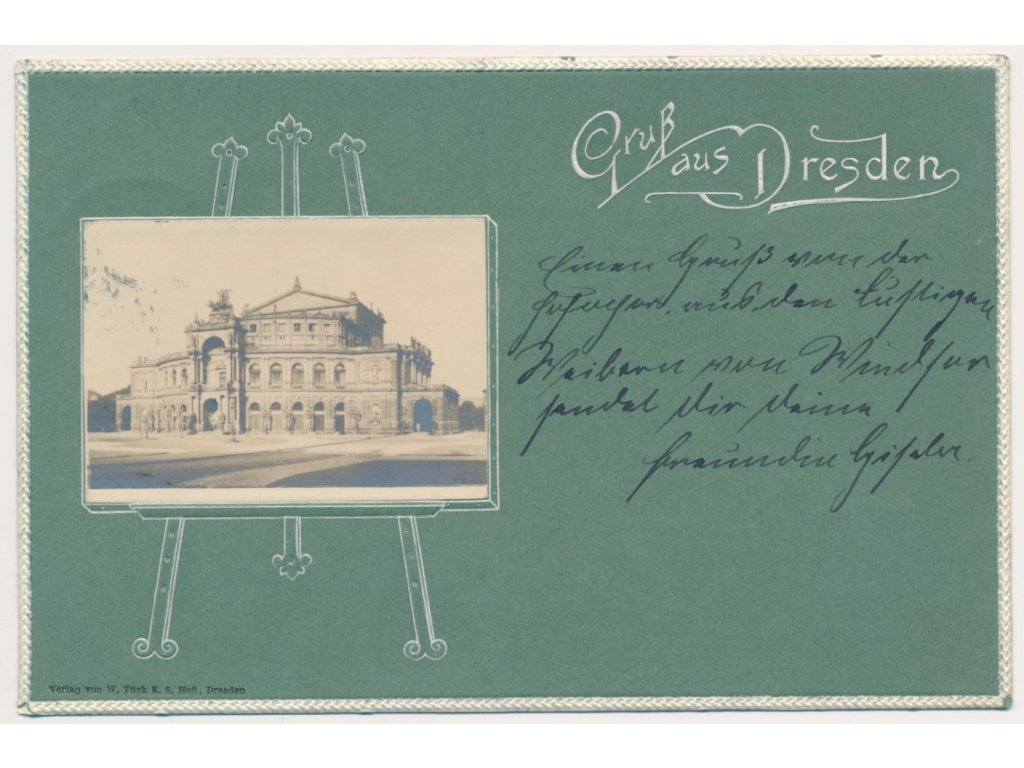 Gruß aus Dresden
Einen Gruß von der
aus den lustigen
Weibern von Windsor
sendet dir deine
Freundin Gisela.
Verlag von W. Türk K. S. Hofl. Dresden